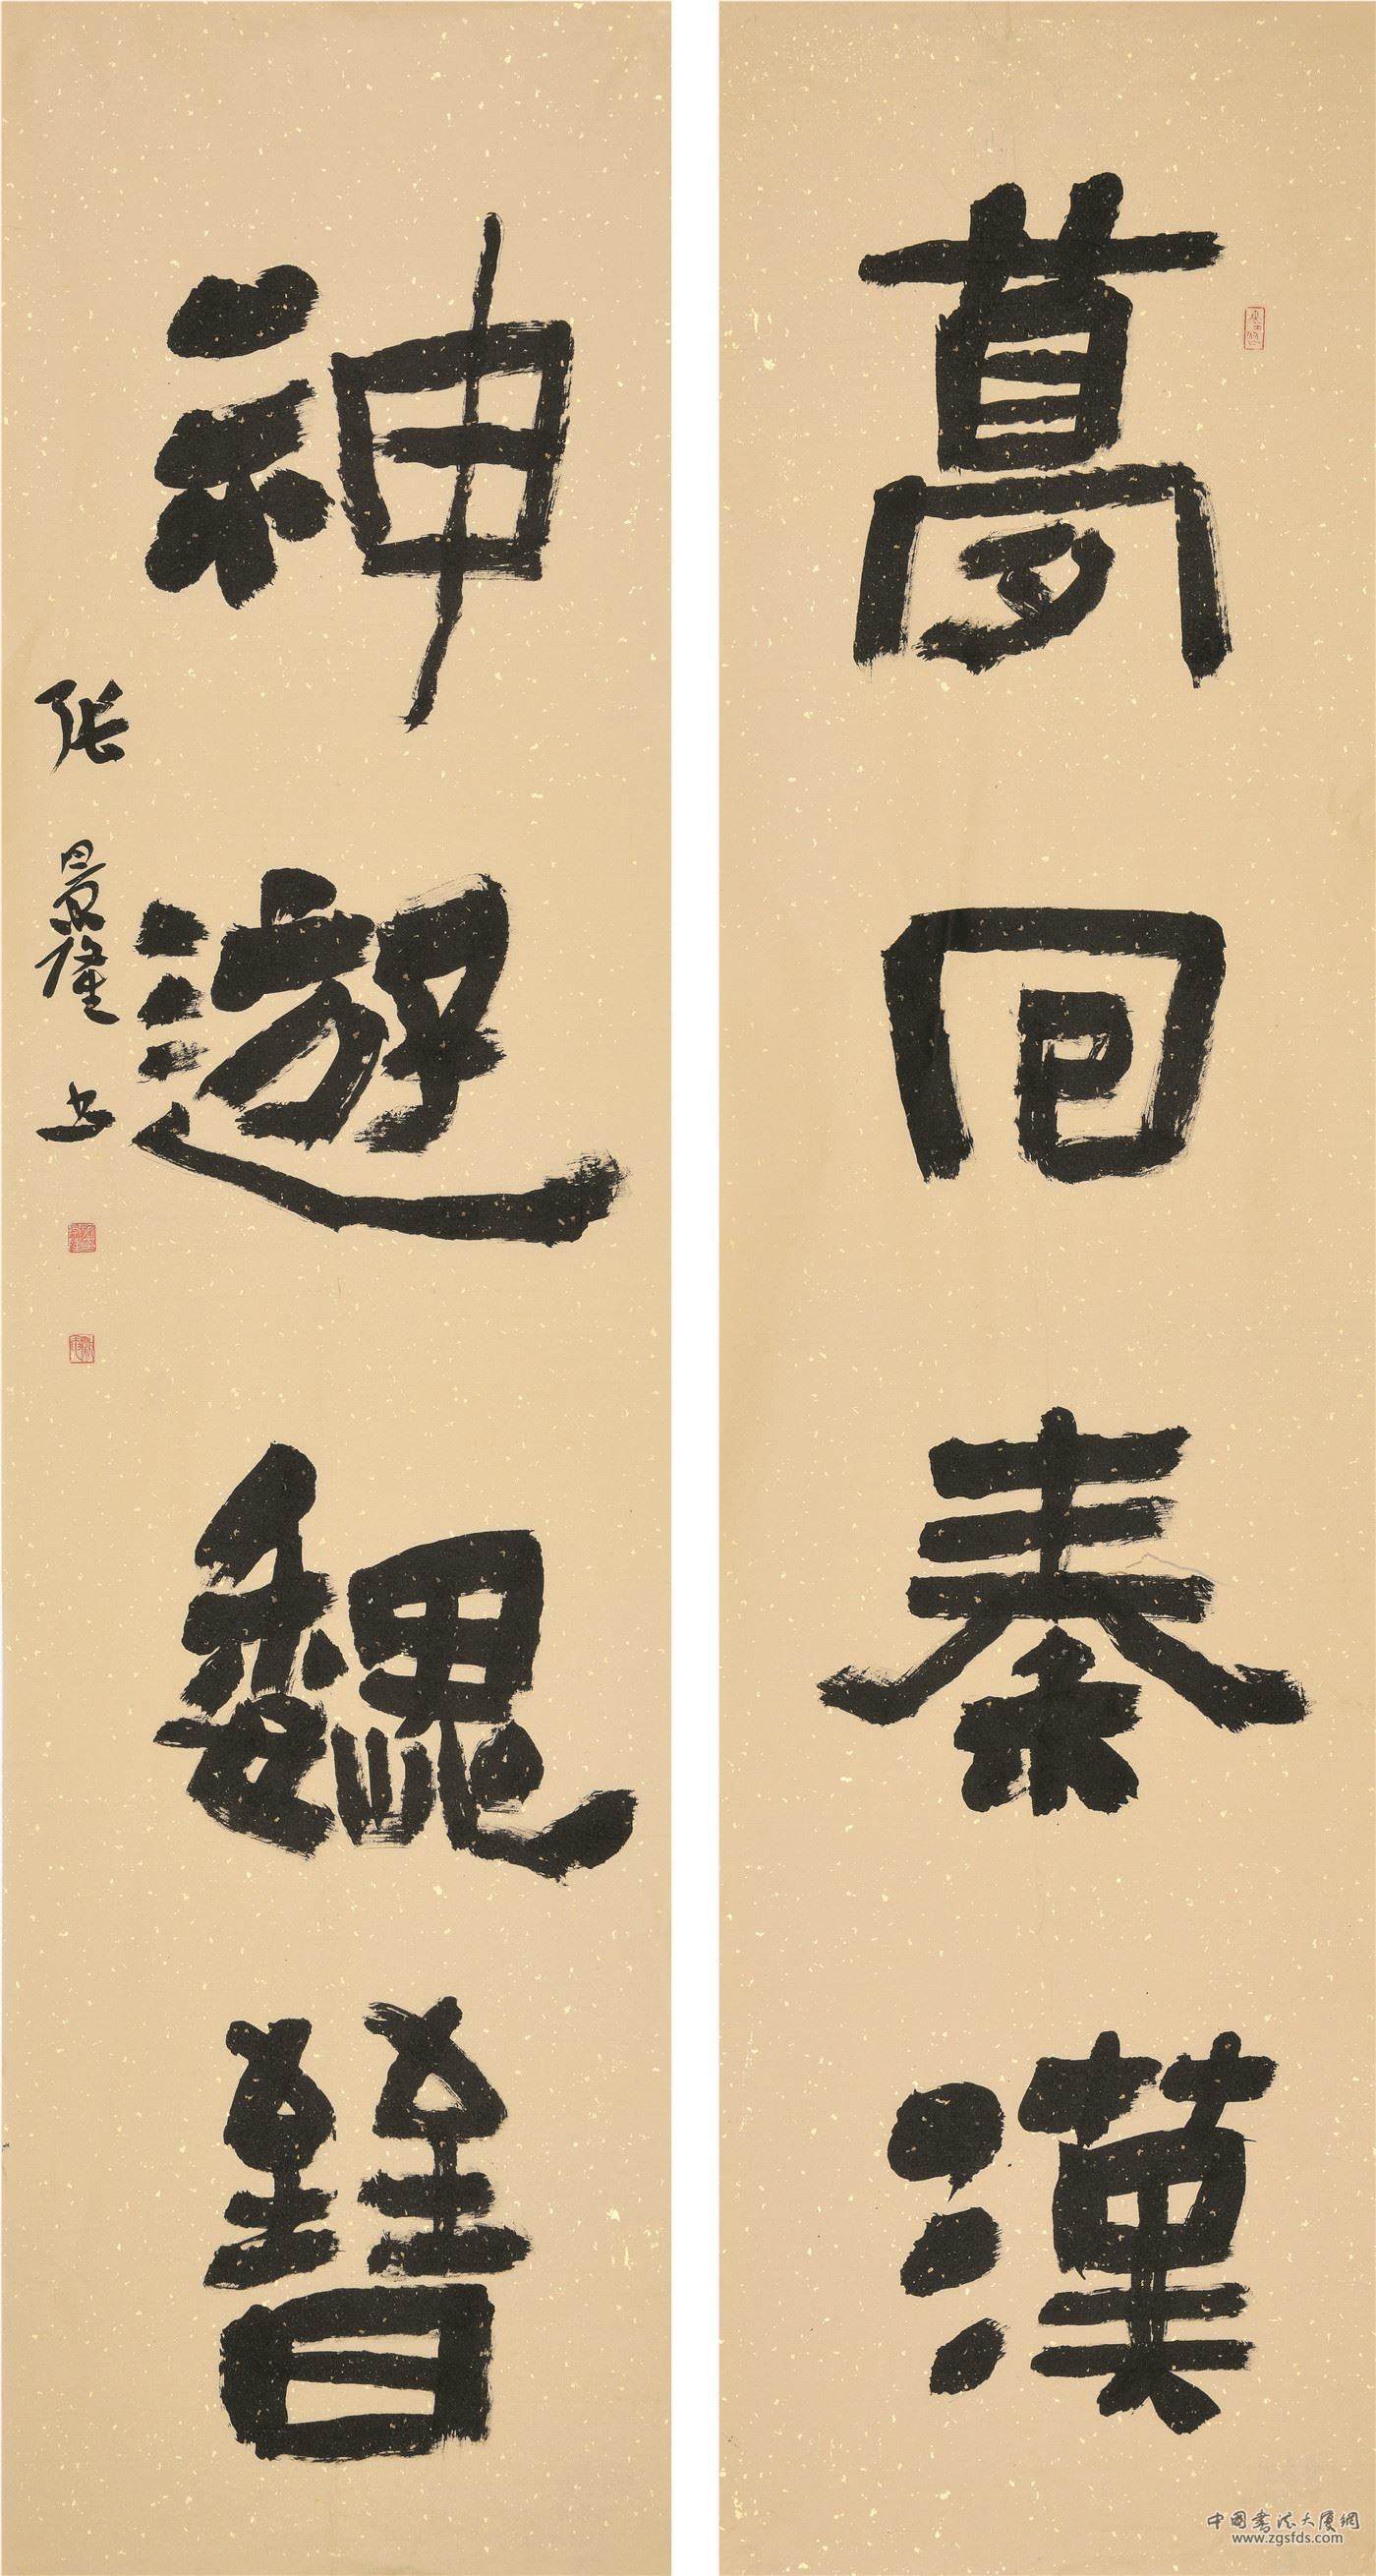 夢回秦漢
神遊魏晉
張景隆書
中国书法大厦网
www.zgsfds.com